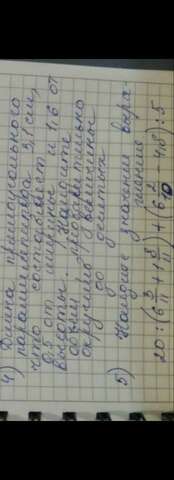 4) Длина прямоугольного
параллелепипеда 3,1 см,
что составляет
0,5 от ширины и 1,6 от
высоты. Найдите
объём
округлив до десятых
5) Найдите значения выра-
жения
20:(6 3/11 + 1 8/11) + (6 - 4,6):5